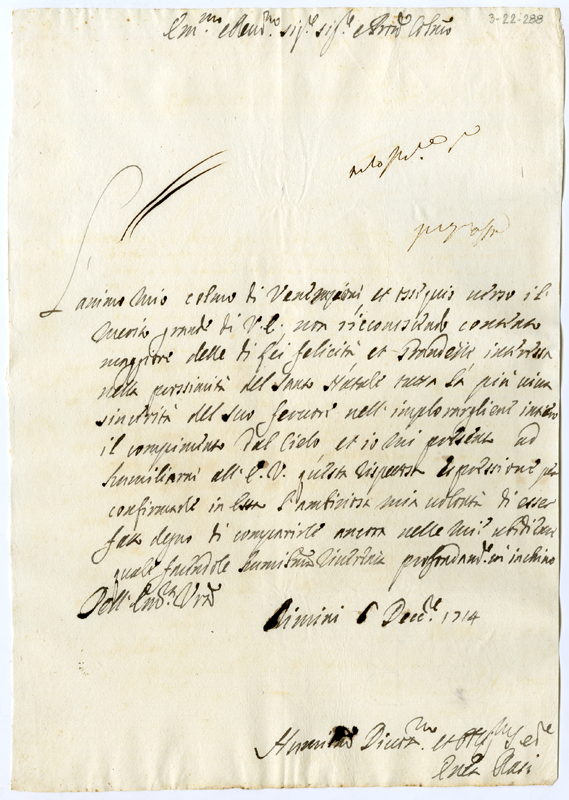 3-22-288
Em.mo e Rev.mo sig.r sig.r e Pron Colmo
L'animo mio colmo di Venerazioni et ossequio verso il
merito grande di V.E. non riconoscendo contento
maggiore delle di Lei felicità et Grandezze interessa
nella prossimità del Santo Natale tutta la più viva
sincerità del suo fervore nell' implorargliene intiero
il compimento dal Cielo et io mi presento ad
humiliarmi all' E.V. questa rispettosa espressione per
confirmarle in essa l'ambiziosa mia volontà di esser
fatto degno di comparirle ancora nelle mie
quale facendole humilissima riverenza profondam.te m'inchino
Dell' Em.za Vra
Rimini 6 Dec.e 1714